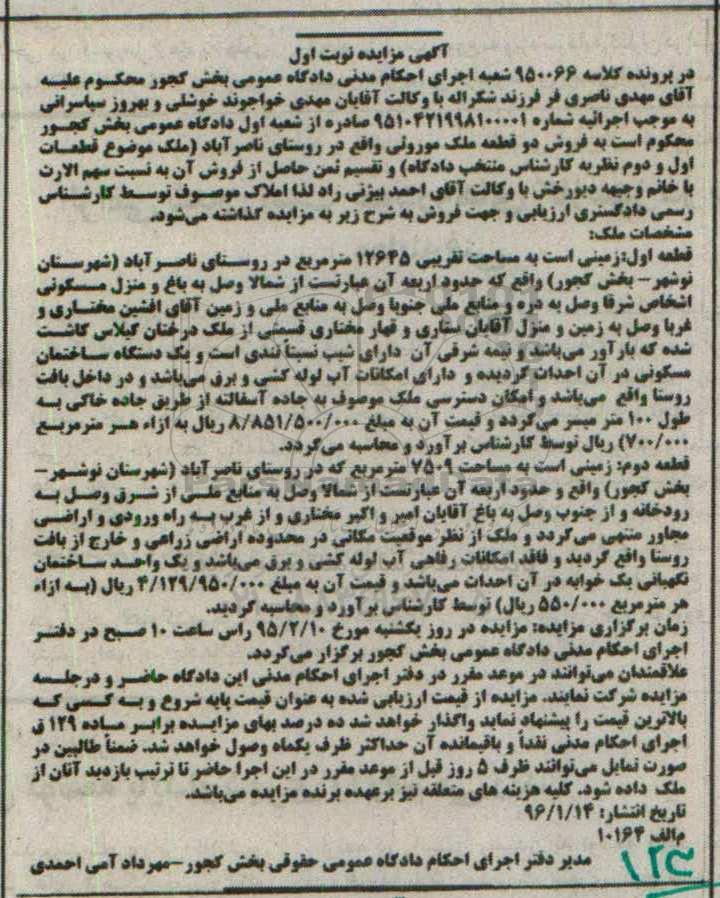 آگهی مزایده نوبت اول
در پرونده کلاسه ۹۵۰۰۶۶ شعبه اجرای احکام مدنی دادگاه عمومی بخش کجور محکوم علیه
آقای مهدی ناصری فر فرزند شکراله با وکالت آقایان مهدی خواجوند خوشلی و بهروز سیاسرانی
به موجب اجرائیه شماره ۹۵۱۰۴۲۱۹۹۸۱۰۰۰۰۱ صادره از شعبه اول دادگاه عمومی بخش کجور
محکوم است به فروش دو قطعه ملک موروثی واقع در روستای ناصرآباد (ملک موضوع قطعات
اول و دوم نظریه کارشناس منتخب دادگاه) و تقسیم ثمن حاصل از فروش آن به نسبت سهم الارث
با خانم وجیهه دیورخش با وکالت آقای احمد بیژنی راد لذا املاک موصوف توسط کارشناس
رسمی دادگستری ارزیابی و جهت فروش به شرح زیر به مزایده گذاشته می‌شود.
مشخصات ملک:
قطعه اول:زمینی است به مساحت تقریبی ۱۲۶۴۵ مترمربع در روستای ناصرآباد (شهرستان
نوشهر- بخش کجور) واقع که حدود اربعه آن عبارتست از شمالا وصل به باغ و منزل مسکونی
اشخاص شرقا وصل به دره و منابع ملی جنوبا وصل به منابع ملی و زمین آقای افشین مختاری و
غربا وصل به زمین و منزل آقایان ستاری و قهار مختاری قسمتی از ملک درختان گیلاس کاشت
شده که بارآور می‌باشد و نیمه شرقی آن دارای شیب نسبتاً تندی است و یک دستگاه ساختمان
مسکونی در آن احداث گردیده و دارای امکانات آب لوله کشی و برق می‌باشد و در داخل بافت
روستا واقع می‌باشد و امکان دسترسی ملک موصوف به جاده آسفالته از طریق جاده خاکی به
طول ۱۰۰ متر میسر می‌گردد و قیمت آن به مبلغ ۸/۸۵۱/۵۰۰/۰۰۰ ریال به ازاء هر مترمربع
۷۰۰/۰۰۰) ریال توسط کارشناس برآورد و محاسبه می‌گردد.
قطعه دوم: زمینی است به مساحت ۷۵۰۹ مترمربع که در روستای ناصرآباد (شهرستان نوشهر-
بخش کجور) واقع و حدود اربعه آن عبارتست از شمالا وصل به منابع ملی از شرق وصل به
رودخانه و از جنوب وصل به باغ آقایان امیر و اکبر مختاری و از غرب به راه ورودی و اراضی
مجاور منتهی می‌گردد و ملک از نظر موقعیت مکانی در محدوده اراضی زراعی و خارج از بافت
روستا واقع گردید و فاقد امکانات رفاهی آب لوله کشی و برق می‌باشد و یک واحد ساختمان
نگهبانی یک خوابه در آن احداث می‌باشد و قیمت آن به مبلغ ۴/۱۲۹/۹۵۰/۰۰۰ ریال (به ازاء
هر مترمربع ۵۵۰/۰۰۰ ریال) توسط کارشناس برآورد و محاسبه گردید.
زمان برگزاری مزایده: مزایده در روز یکشنبه مورخ ۹۵/۲/۱۰ راس ساعت ۱۰ صبح در دفتر
اجرای احکام مدنی دادگاه عمومی بخش کجور برگزار می‌گردد.
علاقمندان می‌توانند در موعد مقرر در دفتر اجرای احکام مدنی این دادگاه حاضر و درجلسه
مزایده شرکت نمایند. مزایده از قیمت ارزیابی شده به عنوان قیمت پایه شروع و به کسی که
بالاترین قیمت را پیشنهاد نماید واگذار خواهد شد ده درصد بهای مزایده برابر ماده ۱۲۹ ق
اجرای احکام مدنی نقداً و باقیمانده آن حداکثر ظرف یکماه وصول خواهد شد. ضمناً طالبین در
صورت تمایل می‌توانند ظرف ۵ روز قبل از موعد مقرر در این اجرا حاضر تا ترتیب بازدید آنان از
ملک داده شود. کلیه هزینه های متعلقه نیز برعهده برنده مزایده می‌باشد.
تاریخ انتشار: ۹۶/۱/۱۴
م‌الف ۱۰۱۶۴
مدیر دفتر اجرای احکام دادگاه عمومی حقوقی بخش کجور-مهرداد آمی احمدی